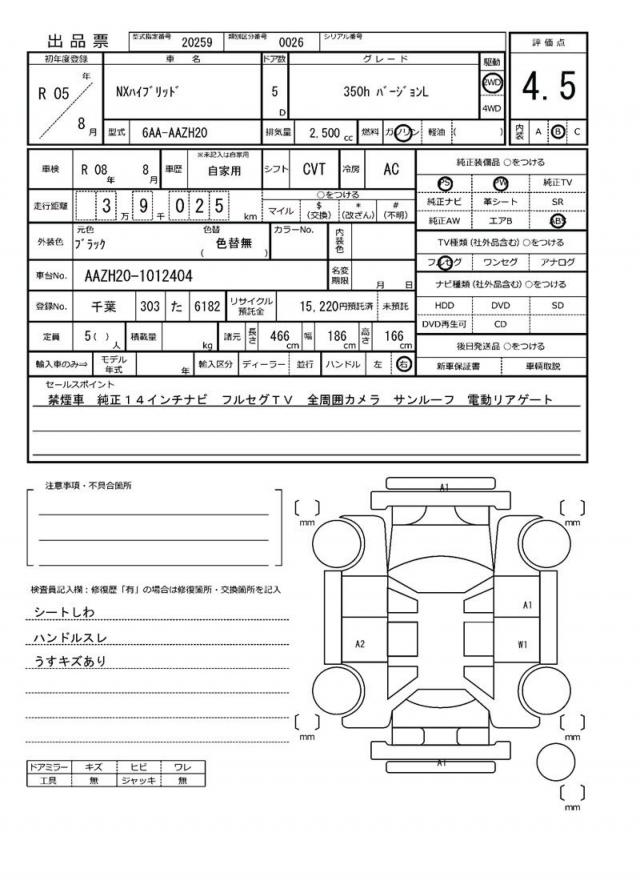 出品票 型式指定番号 20259 類別区分番号 0026 シリアル番号
初年度登録 車名 ドア数 グレード 駆動 評価点
R 05 年 8 月 NXハイブリッド 5 D 350h バージョンL 2WD 4WD 4.5
型式 6AA-AAZH20 排気量 2,500 cc 燃料 ガソリン 軽油 ( ) 内装 A B C
車検 R 08 年 8 月 車歴 ※未記入は自家用 自家用 シフト CVT 冷房 AC 純正装備品 ○をつける
PS PW 純正TV
走行距離 3 万 9 千 0 2 5 km ○をつける マイル $ (交換) * (改ざん) # (不明) 純正ナビ 革シート SR
純正AW エアB ABS
外装色 元色 ブラック 色替 ( 色替無 ) カラーNo. 内装色 TV種類 (社外品含む) ○をつける
フルセグ ワンセグ アナログ
車台No. AAZH20-1012404 名変期限 月 日 ナビ種類 (社外品含む) ○をつける
登録No. 千葉 303 た 6182 リサイクル預託金 15,220円預託済 未預託 HDD DVD SD
DVD再生可 CD
定員 5 ( ) 人 積載量 kg 諸元 長さ 466 cm 幅 186 cm 高さ 166 cm 後日発送品 ○をつける
輸入車のみ⇒ モデル年式 年 輸入区分 ディーラー 並行 ハンドル 左 右 新車保証書 車輌取説
セールスポイント
禁煙車 純正14インチナビ フルセグTV 全周囲カメラ サンルーフ 電動リアゲート
注意事項・不具合箇所
A1
mm mm
検査員記入欄：修復歴「有」の場合は修復箇所・交換箇所を記入
シートしわ
A1
ハンドルスレ
A2 W1
うすキズあり
mm mm
A1
ドアミラー キズ ヒビ ワレ
工具 無 ジャッキ 無
mm